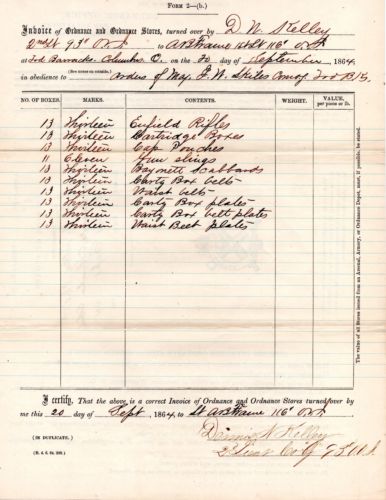 FORM 2—(b.)
Invoice of Ordnance and Ordnance Stores, turned over by D. N. Kelley
2nd Lt 93" O.V.I. to A B Frame 1st Lt 116" O.V.I.
at Tod Barracks Columbus O. on the 20 day of September, 1864
in obedience to (See notes on outside.) orders of Maj. J. W. Skiles Comdg Tod B'ks
NO. OF BOXES. MARKS. CONTENTS. WEIGHT. VALUE, per piece or lb.
13 Thirteen Enfield Rifles
13 Thirteen Cartridge Boxes
13 Thirteen Cap Pouches
11 Eleven Gun slings
13 Thirteen Bayonett Scabbards
13 Thirteen Cartg Box belts
13 Thirteen Waist belts
13 Thirteen Cartg Box plates
13 Thirteen Cartg Box belt plates
13 Thirteen Waist Belt plates
The value of all Stores issued from an Arsenal, Armory, or Ordnance Depot, must, if possible, be stated.
I certify, That the above, is a correct Invoice of Ordnance and Ordnance Stores turned over by
me this 20 day of Sept, 1864, to Lt A B Frame 116" O.V.I.
(IN DUPLICATE.)
Daniel N. Kelley
2d Lieut Co G 93 O.V.I.